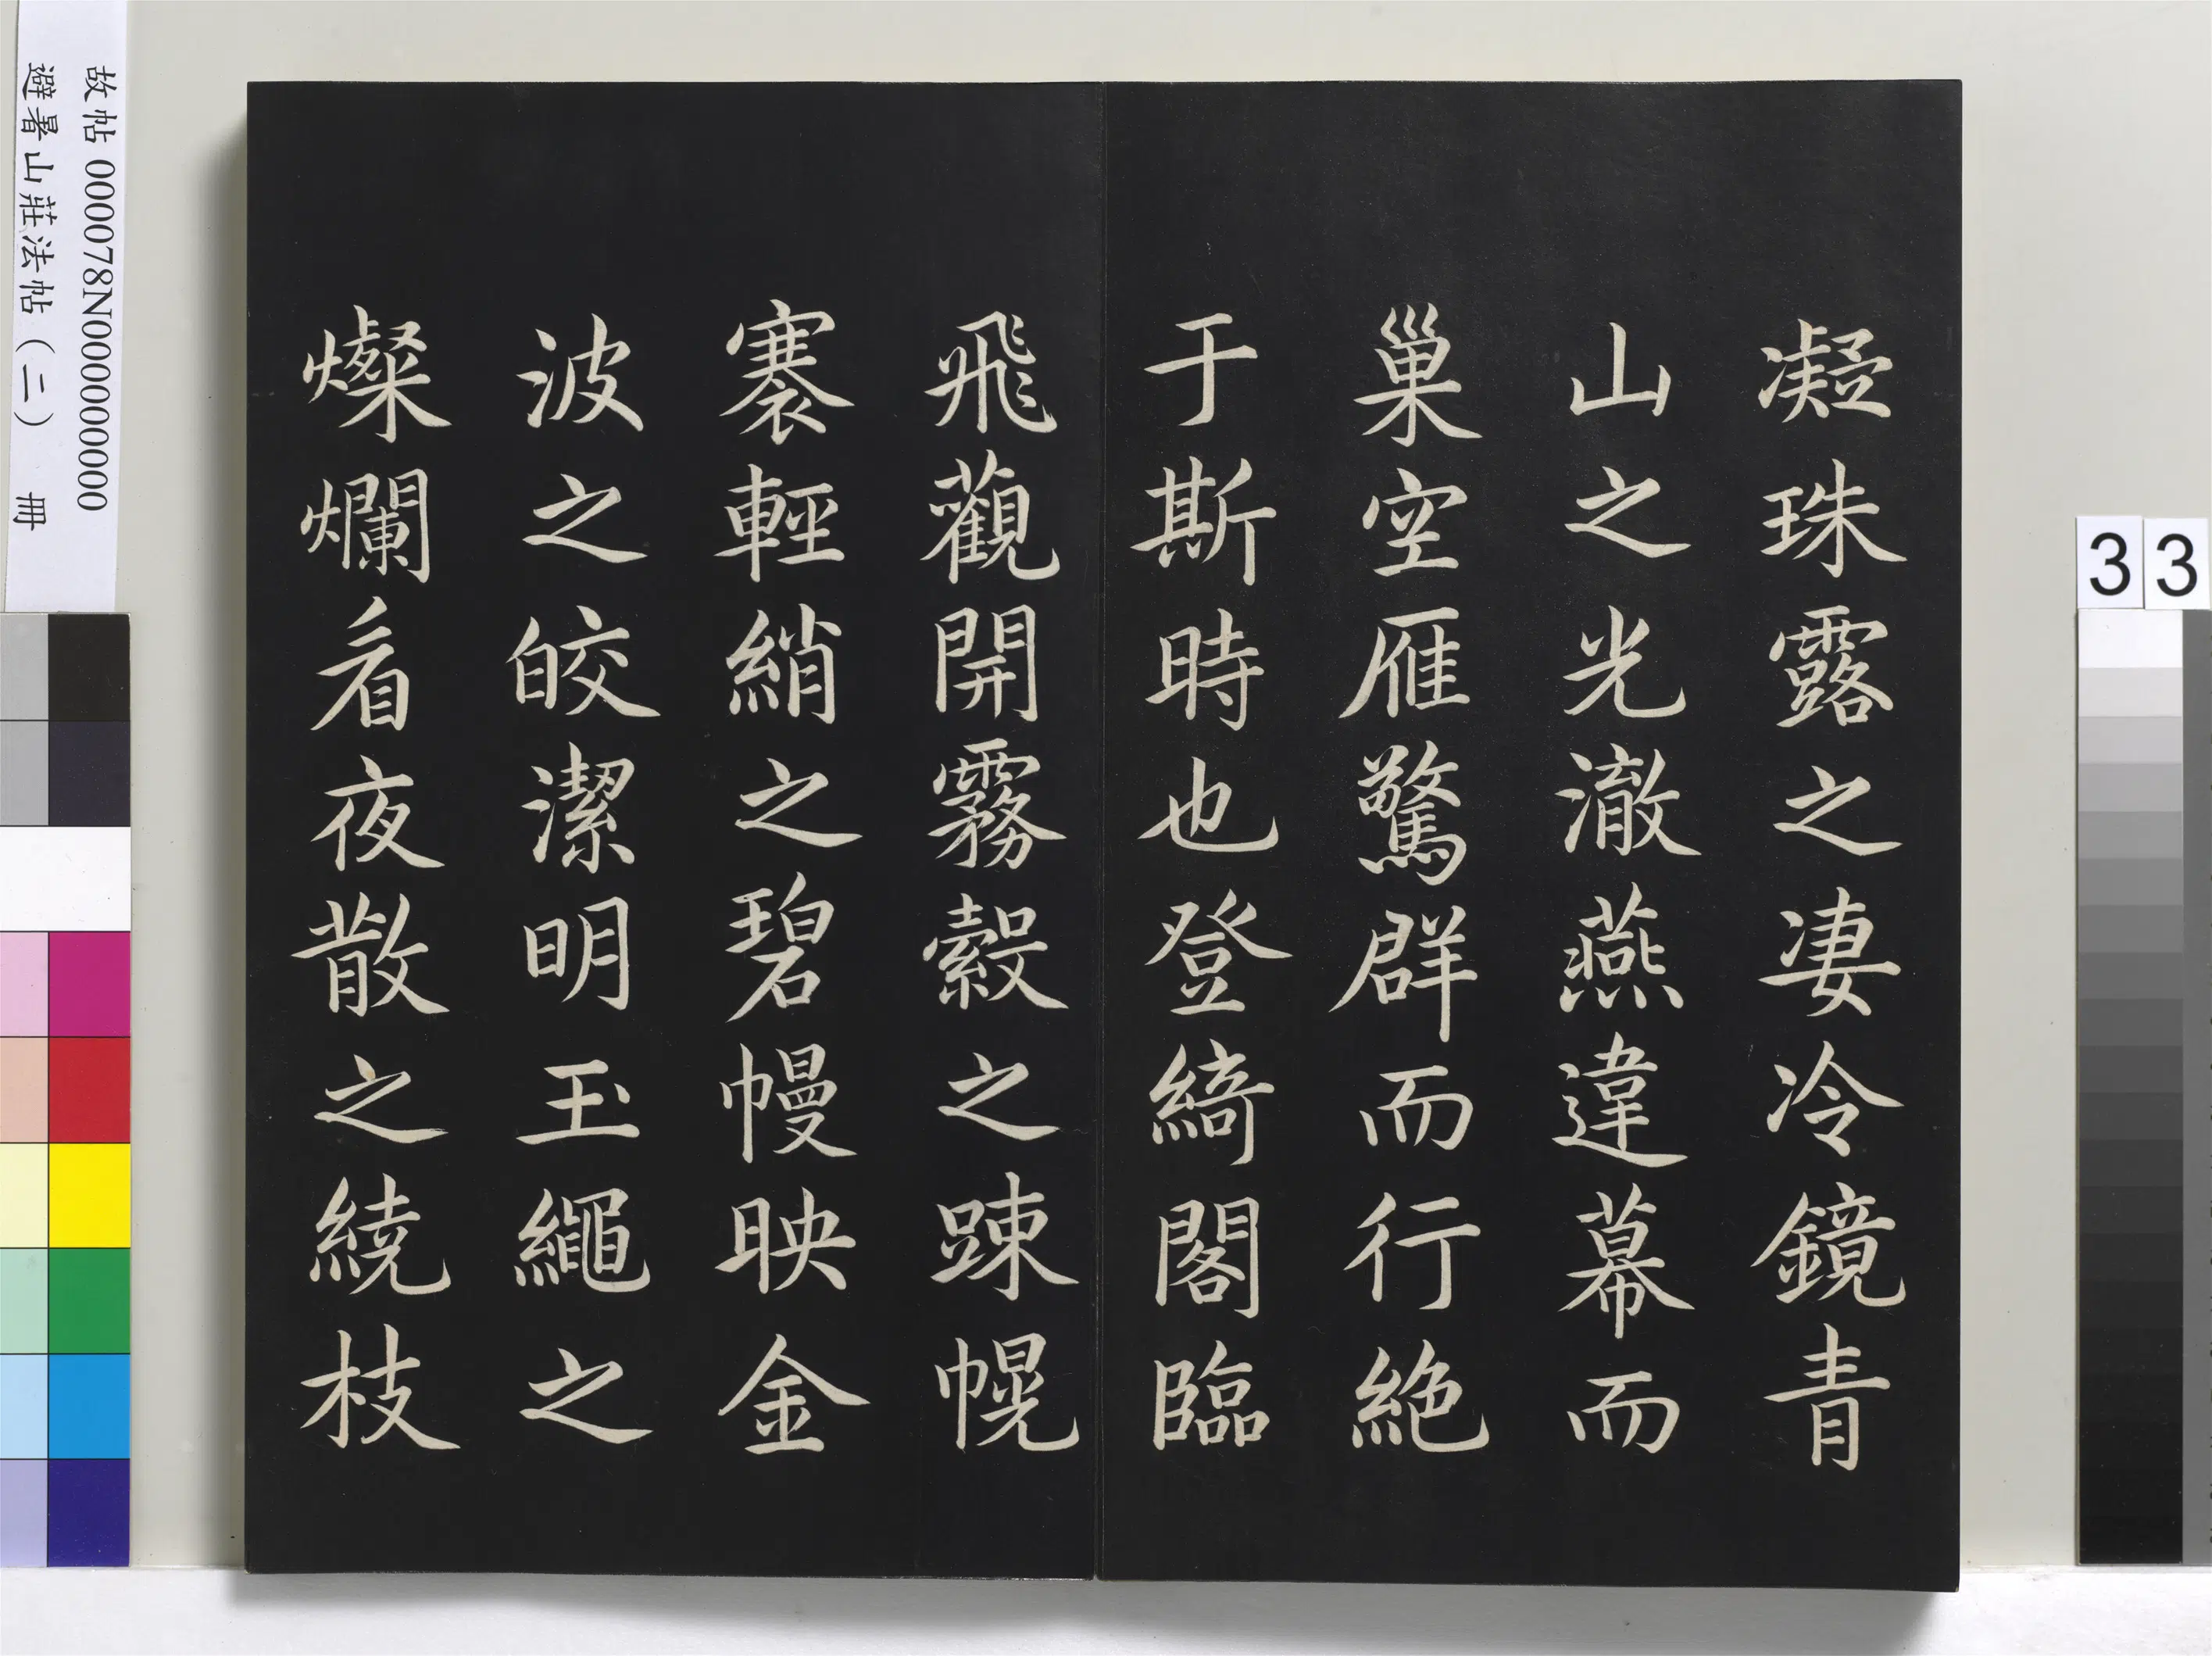 凝珠露之凄冷鏡青
山之光澈燕違幕而
巢空雁驚群而行絶
于斯時也登綺閣臨
飛觀開霧縠之踈幌
褰輕綃之碧幔映金
波之皎潔明玉繩之
燦爛看夜散之繞枝
故帖 000078N000000000
避暑山莊法帖（二） 冊
33